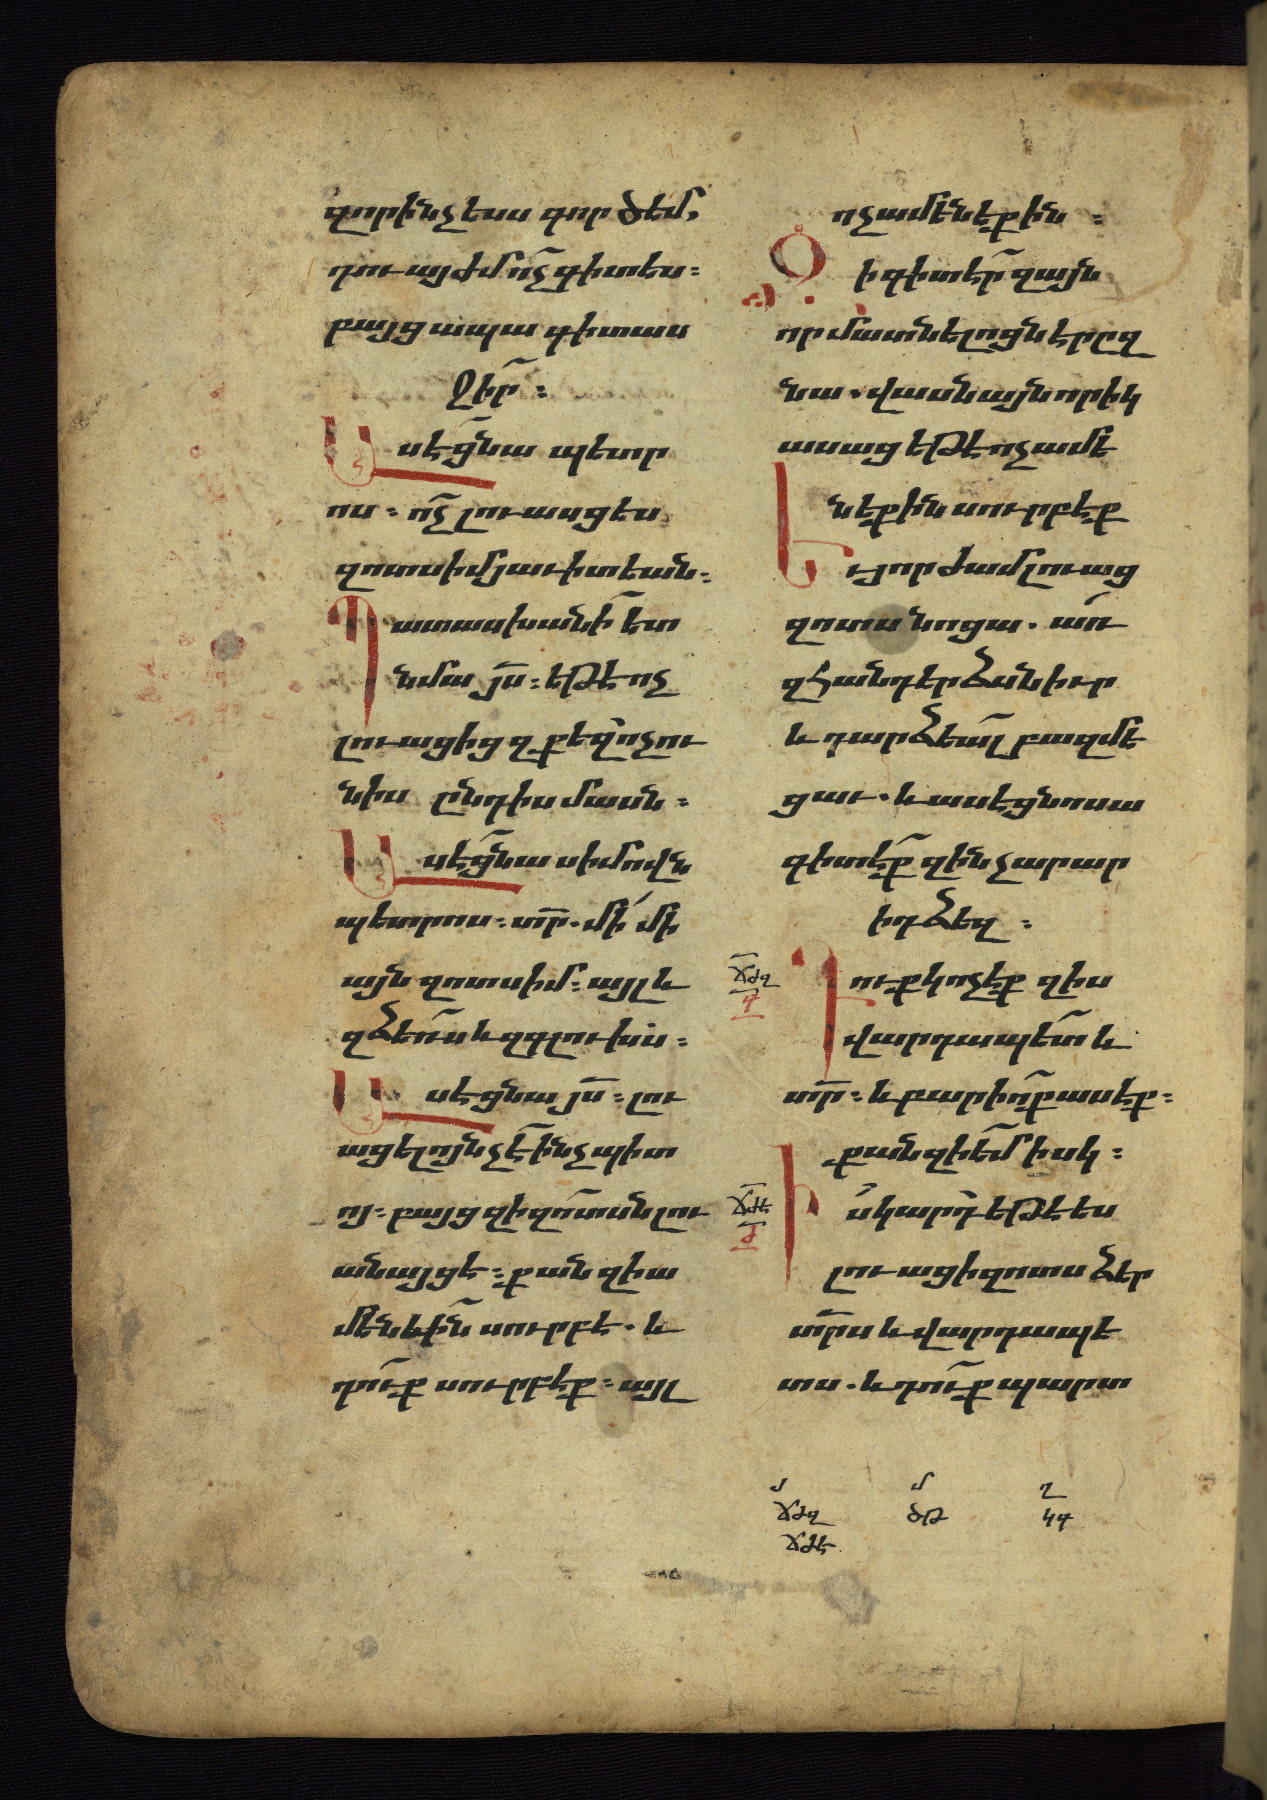 զորինչ ես գործեմ,
դու այժմ ո՛չ գիտես։
բայց ապա գիտաս
ջիր։
Ասէ ցնա պետր
ոս։ ո՛չ լուասցես
զոտս իմ յաւիտեան։
Պատասխանի ետ
նմա յս։ եթէ ոչ
լուացից զքեզ ոչ ու
նիս ընդ իս մասն։
Ասէ ցնա սիմովն
պետրոս։ տր. մի՛ մի
այն զոտս իմ։ այլ և
զձեռս և զգլուխս։
Ասէ ցնա յս։ լու
ացելոյն չէ ինչ պիտ
ոյ։ բայց զի զոտսն լու
անայցէ։ քանզի ա
մենևին սուրբ է. և
դուք սուրբ էք։ այլ
ոչ ամենեքին։
Զի գիտէր զայն
որ մատնելոցն էր ըզ
նա. վասն այնորիկ
ասաց եթէ ոչ ամե
նեքին սուրբ էք
Եւ յորժամ լուաց
զոտս նոցա. առ
զհանդերձ անիւր
և դարձեալ բազմե
ցաւ. և ասէ ցնոսա
գիտէք զինչ արար
ի դձեզ։
Դուք կոչէք զիս
վարդապետ և
տր։ և բարիոք ասէք։
քանզի եմ իսկ։
Իսկ արդ եթէ ես
լուացի զոտս ձեր
տրս և վարդապե
տս. և դուք պարտ
ՃԺԶ
Գ
ՃԺԷ
Ժ
յ մ ղ
ՃԺԶ ԾԹ ԿԳ
ՃԺԷ